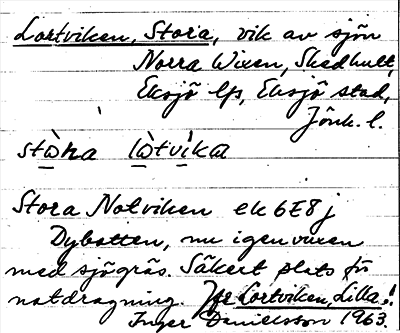 Lortviken, Stora, vik av sjön
Norra Wixen, Skedhult,
Eksjö lfs, Eksjö stad,
Jönk. l.
stὼra lὼtvìka
Stora Notviken ek 6E8j
Dybotten, nu igenvuxen
med sjögräs. Säkert plats för
notdragning. Jfr Lortviken, Lilla!
Inger Danielsson 1963.